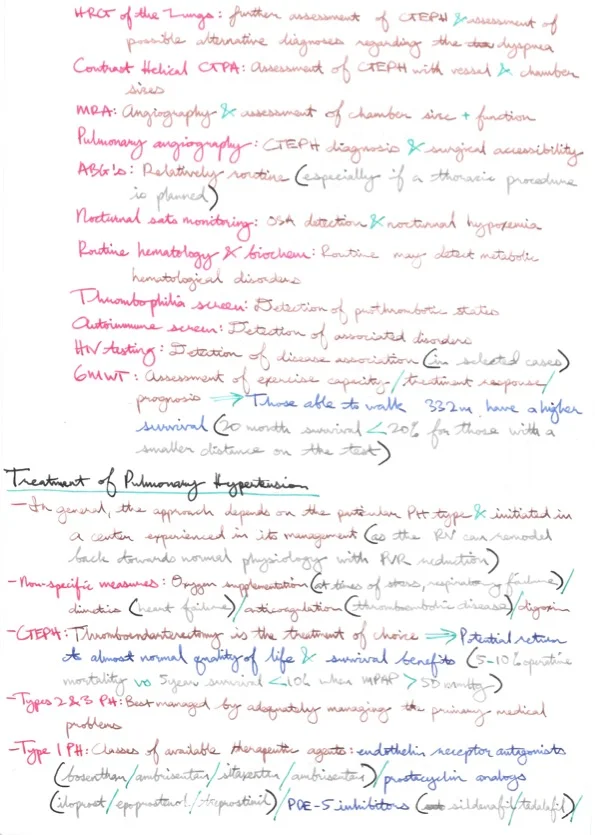 HRCT of the Lungs: further assessment of CTEPH & assessment of
possible alternative diagnoses regarding the dyspnea
Contrast Helical CTPA: Assessment of CTEPH with vessel & chamber
sizes
MRA: Angiography & assessment of chamber size + function
Pulmonary angiography: CTEPH diagnosis & surgical accessibility
ABG's: Relatively routine (especially if a thoracic procedure
is planned)
Nocturnal sats monitoring: OSA detection & nocturnal hypoxemia
Routine hematology & biochem: Routine may detect metabolic
hematological disorders
Thrombophilia screen: Detection of prothrombotic states
Autoimmune screen: Detection of associated disorders
HIV testing: Detection of disease association (in selected cases)
6MWT: Assessment of exercise capacity/treatment response/
prognosis ⇒ Those able to walk 332m have a higher
survival (20 month survival <20% for those with a
smaller distance on the test)
Treatment of Pulmonary Hypertension
- In general, the approach depends on the particular PH type & initiated in
a center experienced in its management (as the RV can remodel
back towards normal physiology with PVR reduction)
- Non-specific measures: Oxygen supplementation (at times of stress, respiratory failure)/
diuretics (heart failure)/anticoagulation (thromboembolic disease)/digoxin
- CTEPH: Thromboendarterectomy is the treatment of choice ⇒ Potential return
to almost normal quality of life & survival benefits (5-10% operative
mortality vs 5 year survival <10% when MPAP > 50 mmHg)
- Types 2 & 3 PH: Best managed by adequately managing the primary medical
problems
- Type 1 PH: Classes of available therapeutic agents: endothelin receptor antagonists
(bosenthan/ambrisentan/sitaxentan/ambrisentan)/prostacyclin analogs
(iloprost/epoprostenol/treprostinil)/PDE-5 inhibitors (sildenafil/tadalafil)